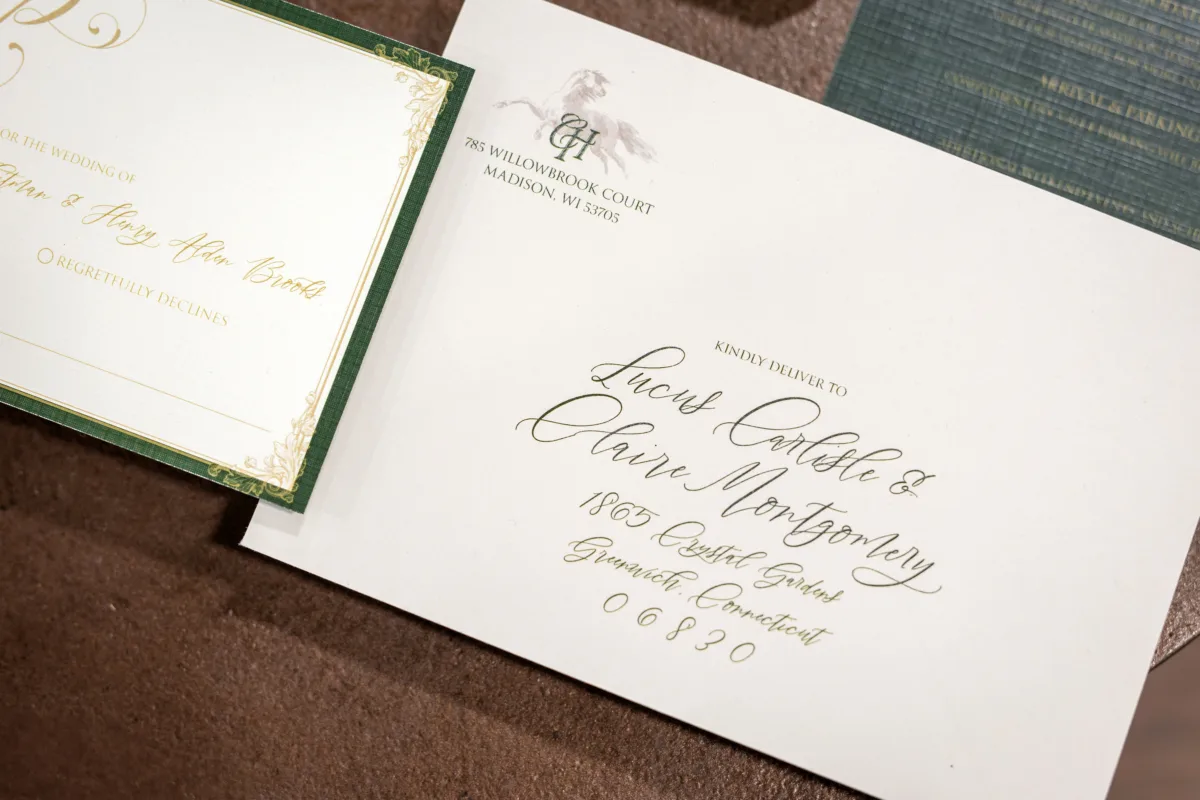 OR THE WEDDING OF
& Henry Alden Brooks
REGRETFULLY DECLINES
GH
785 WILLOWBROOK COURT
MADISON, WI 53705
KINDLY DELIVER TO
Lucus Carlisle &
Claire Montgomery
1865 Crystal Gardens
Greenwich, Connecticut
06830
ARRIVAL & PARKING